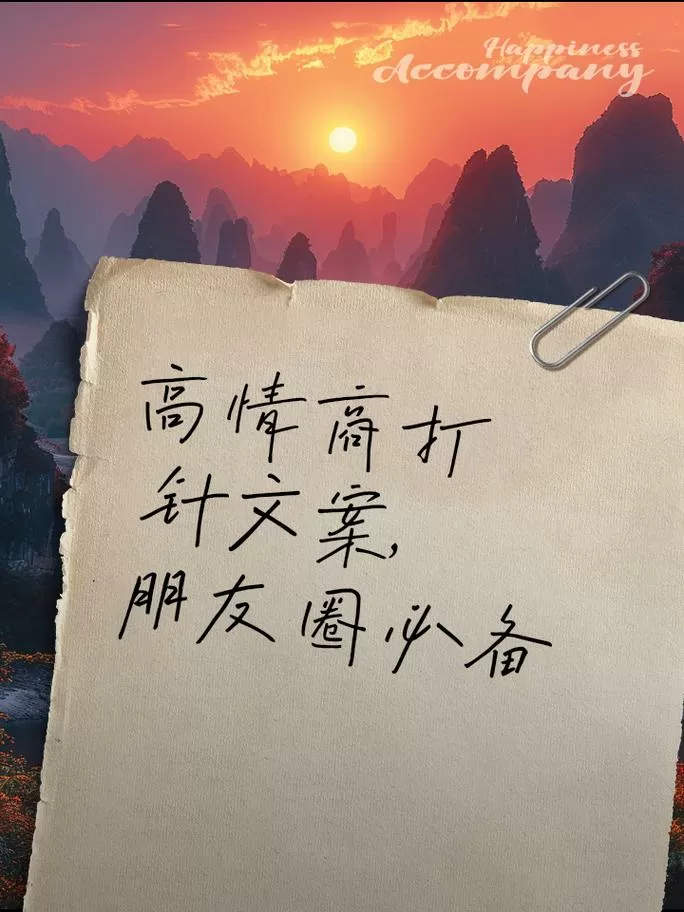 Happiness
Accompany
高情商打
针文案,
朋友圈必备